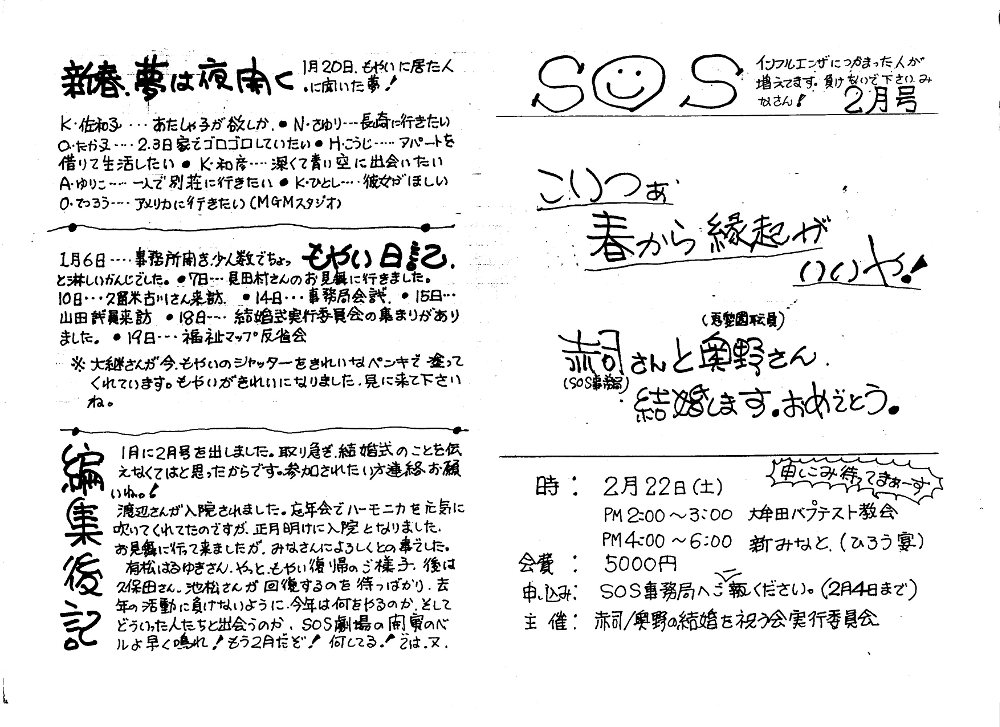 新春、夢は夜開く
1月20日、もやいに居た人
に聞いた夢!
K・佐和子・・・あたしゃ子が欲しか。●N・さゆり・・・長崎に行きたい
O・たか又・・・2.3日家でゴロゴロしていたい●H・こうじ・・・・アパートを
借りて生活したい●K・和彦・・・・深くて青い空に出会いたい
A・ゆりこ・・・一人で別荘に行きたい●K・ひとし・・・・彼女がほしい
O・てつろう・・・アメリカに行きたい(MGMスタジオ)
もやい日記、
1月6日・・・・事務所開き、少人数でちょっ
と淋しいかんじでした。●7日・・・見田村さんのお見舞に行きました。
10日・・・久留米古川さん来訪、●14日・・・事務局会議、●15日・・・
山田議員来訪●18日・・・結婚式実行委員会の集まりがあり
ました。●19日・・・福祉マップ反省会
※大継さんが今、もやいのシャッターをきれいなペンキで塗って
くれています。もやいがきれいになりました、見に来て下さい
ね。
編集後記
1月に2月号を出しました。取り急ぎ、結婚式のことを伝
えなくてはと思ったからです。参加されたい方連絡お願
いねっ!
渡辺さんが入院されました。忘年会でハーモニカを元気に
吹いてくれてたのですが、正月明けに入院となりました。
お見舞に行って来ましたが、みなさんによろしくとの事でした。
有松はるゆきさん、やっと、もやい復帰のご様子、後は
久保田さん、池松さんが回復するのを待つばかり、去
年の活動に負けないように、今年は何をやるのか、そして
どういった人たちと出会うのか、SOS劇場の開幕のベ
ルよ早く鳴れ!もう2月だぞ!何してる!では、又、
SOS
インフルエンザにつかまった人が
増えてます。負けないで下さい、み
なさん!
2月号
こいつぁ
春から縁起が
いいや!
赤司さんと奥野さん、
(SOS事務局)
結婚します。おめでとう。
申しこみ待ってまぁーす
時: 2月22日(土)
PM2:00〜3:00 大牟田バプテスト教会
PM4:00〜6:00 新みなと、(ひろう宴)
会費: 5000円
申し込み: SOS事務局へご一報ください。(2月4日まで)
主催: 赤司/奥野の結婚を祝う会実行委員会